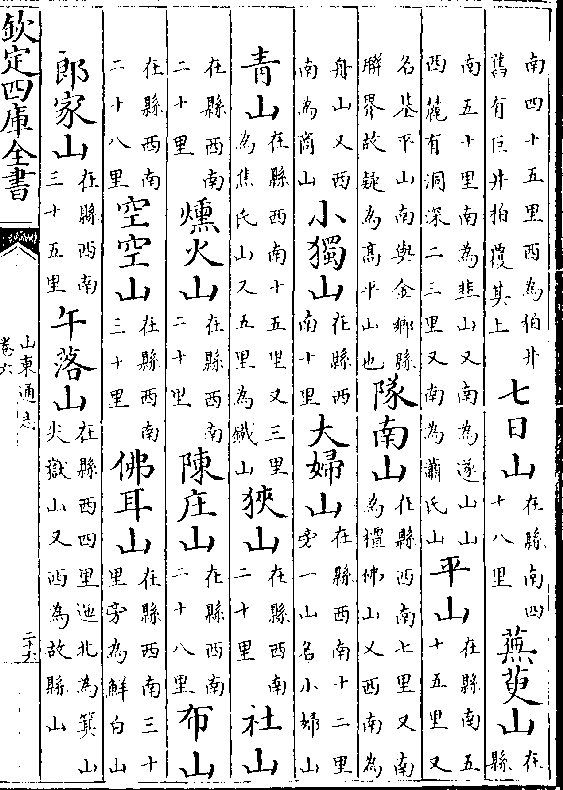 南四十五里西為柏井舊有巨井柏覆其上七日山在縣南四十八里蕪萸山在縣
南五十里南為韭山又南為遂山山西麓有洞深二三里又南為蕭氏山平山在縣南五十五里又
名基平山南與金鄉縣聯界故疑為高平山也隊南山在縣西南七里又南為禮佛山又西南為
舟山又西南為商山小獨山在縣西南十里大婦山在縣西南十二里旁一山名小婦山
青山在縣西南十五里又三里為焦氏山又五里為鐵山狹山在縣西南二十里社山
在縣西南二十里爋火山在縣西南二十里陳庄山在縣西南二十八里布山
在縣西南二十八里空空山在縣西南三十里佛耳山在縣西南三十里旁為鮮白山
郎家山在縣西南三十五里午落山在縣西四里迤北為箕山尖嶽山又西為故縣山
欽定四庫全書
山東通志
卷六